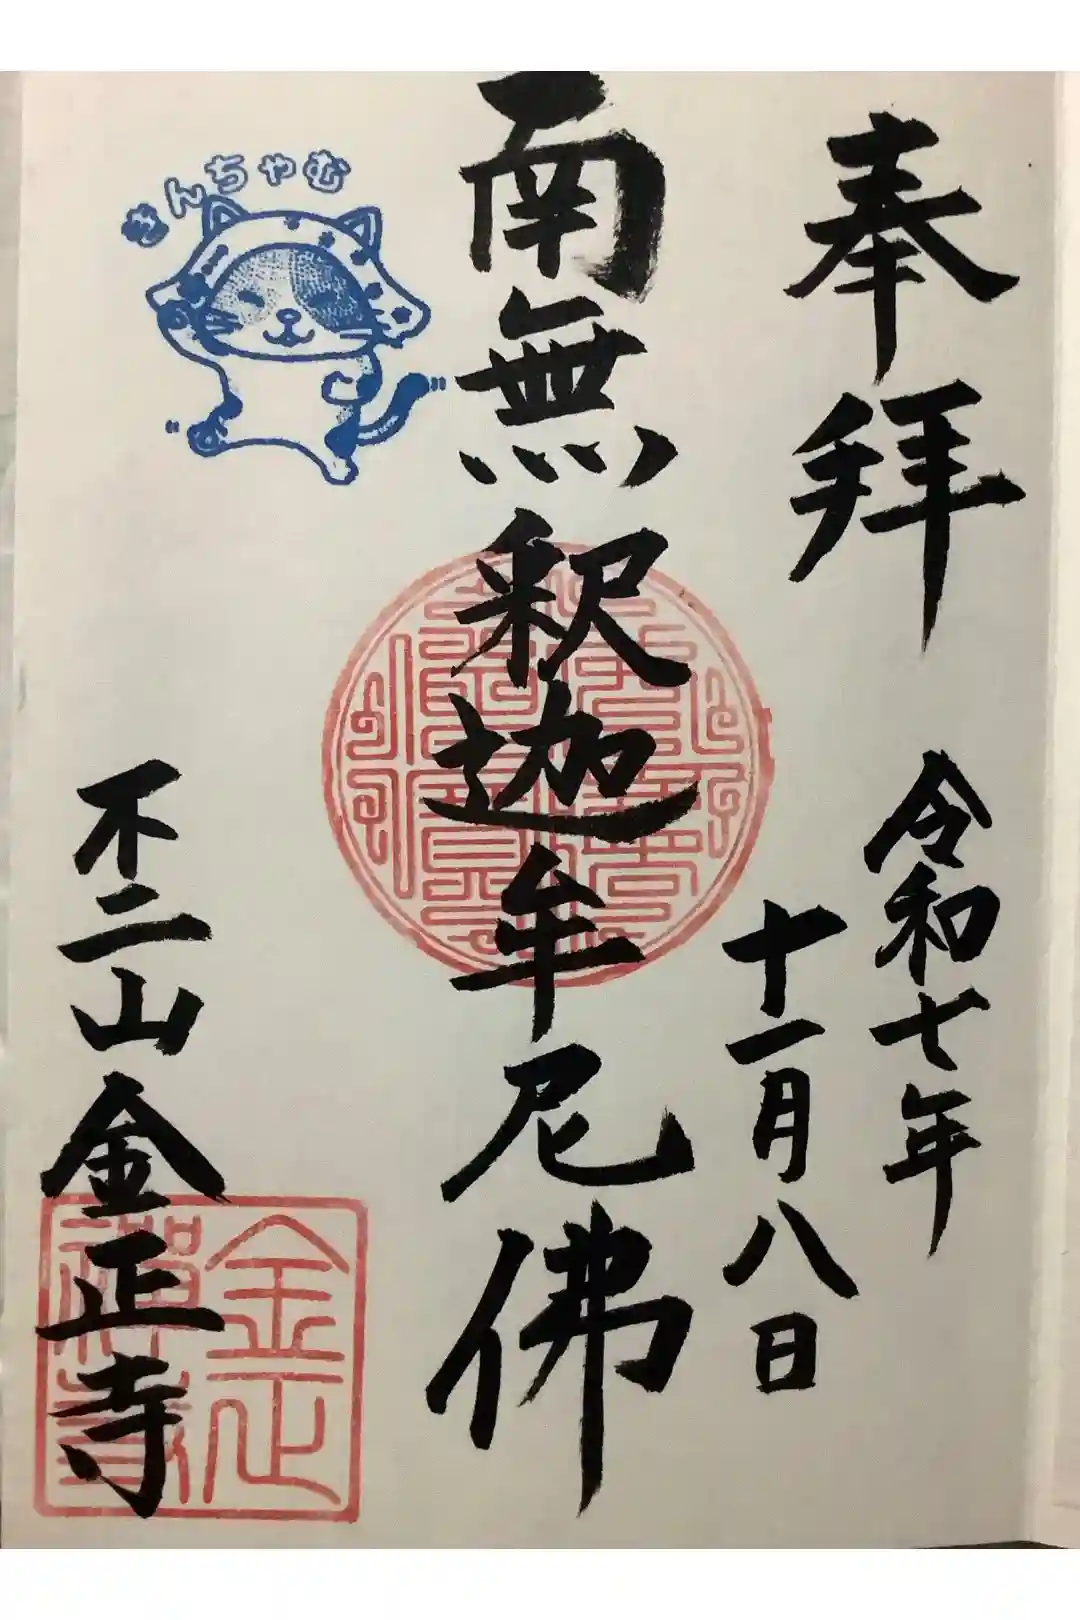 奉拜
令和七年
十一月八日
南無釈迦牟尼佛
きんちゃむ
不二山金正寺
金正
禅寺